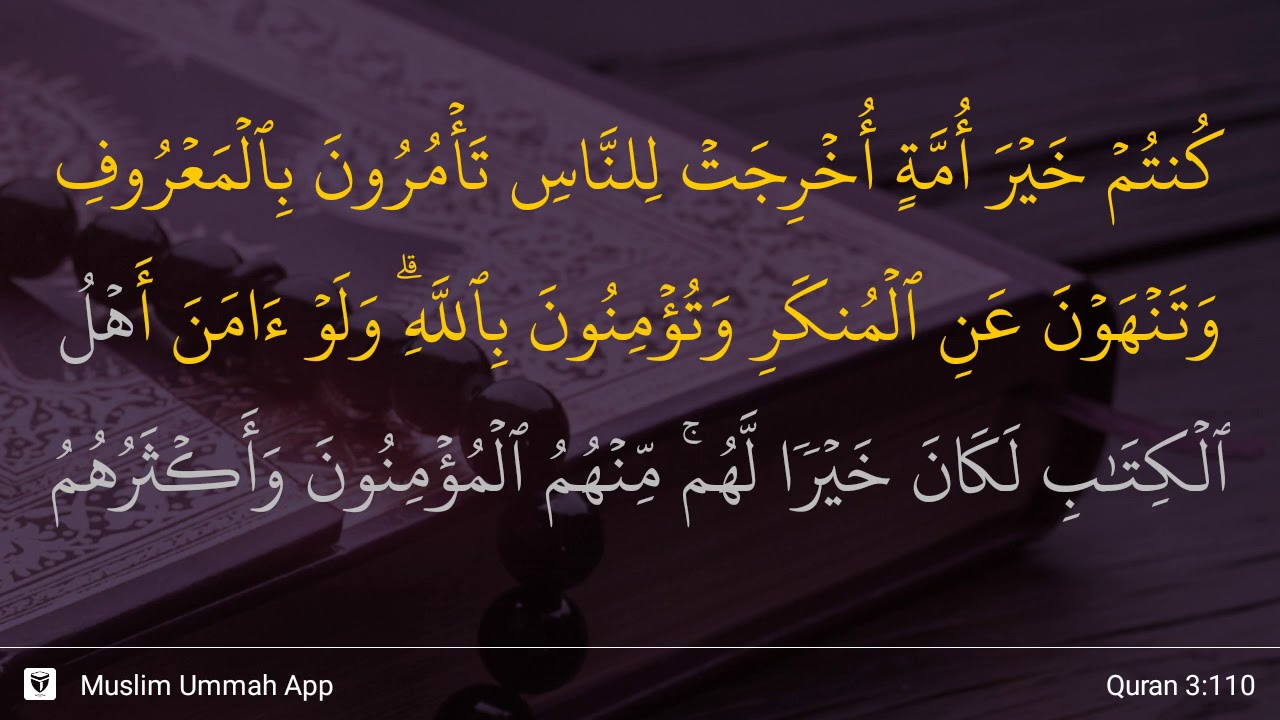 كُنتُمۡ خَيۡرَ أُمَّةٍ أُخۡرِجَتۡ لِلنَّاسِ تَأۡمُرُونَ بِٱلۡمَعۡرُوفِ
وَتَنۡهَوۡنَ عَنِ ٱلۡمُنكَرِ وَتُؤۡمِنُونَ بِٱللَّهِۗ وَلَوۡ ءَامَنَ أَهۡلُ
ٱلۡكِتَٰبِ لَكَانَ خَيۡرٗا لَّهُمۚ مِّنۡهُمُ ٱلۡمُؤۡمِنُونَ وَأَكۡثَرُهُمُ
Muslim Ummah App
Quran 3:110